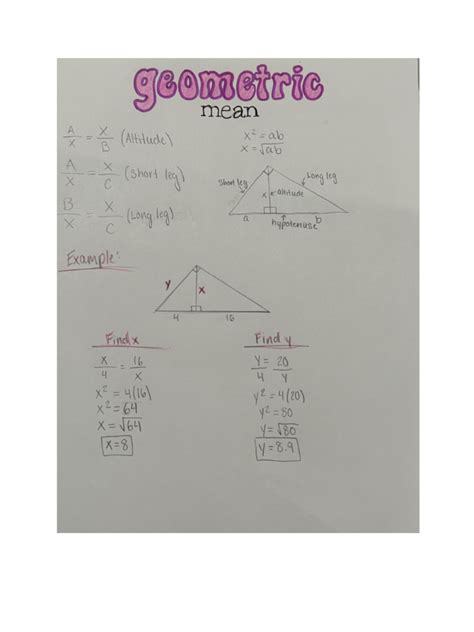 geometric
mean
A/X = X/B (Altitude)
x² = ab
x = √ab
A/X = X/C (Short leg)
B/X = X/C (Long leg)
Short leg
Long leg
x ← altitude
a
b
hypotenuse
Example:
y
x
4
16
Find x
x/4 = 16/x
x² = 4(16)
x² = 64
x = √64
x = 8
Find y
y/4 = 20/y
y² = 4(20)
y² = 80
y = √80
y = 8.9